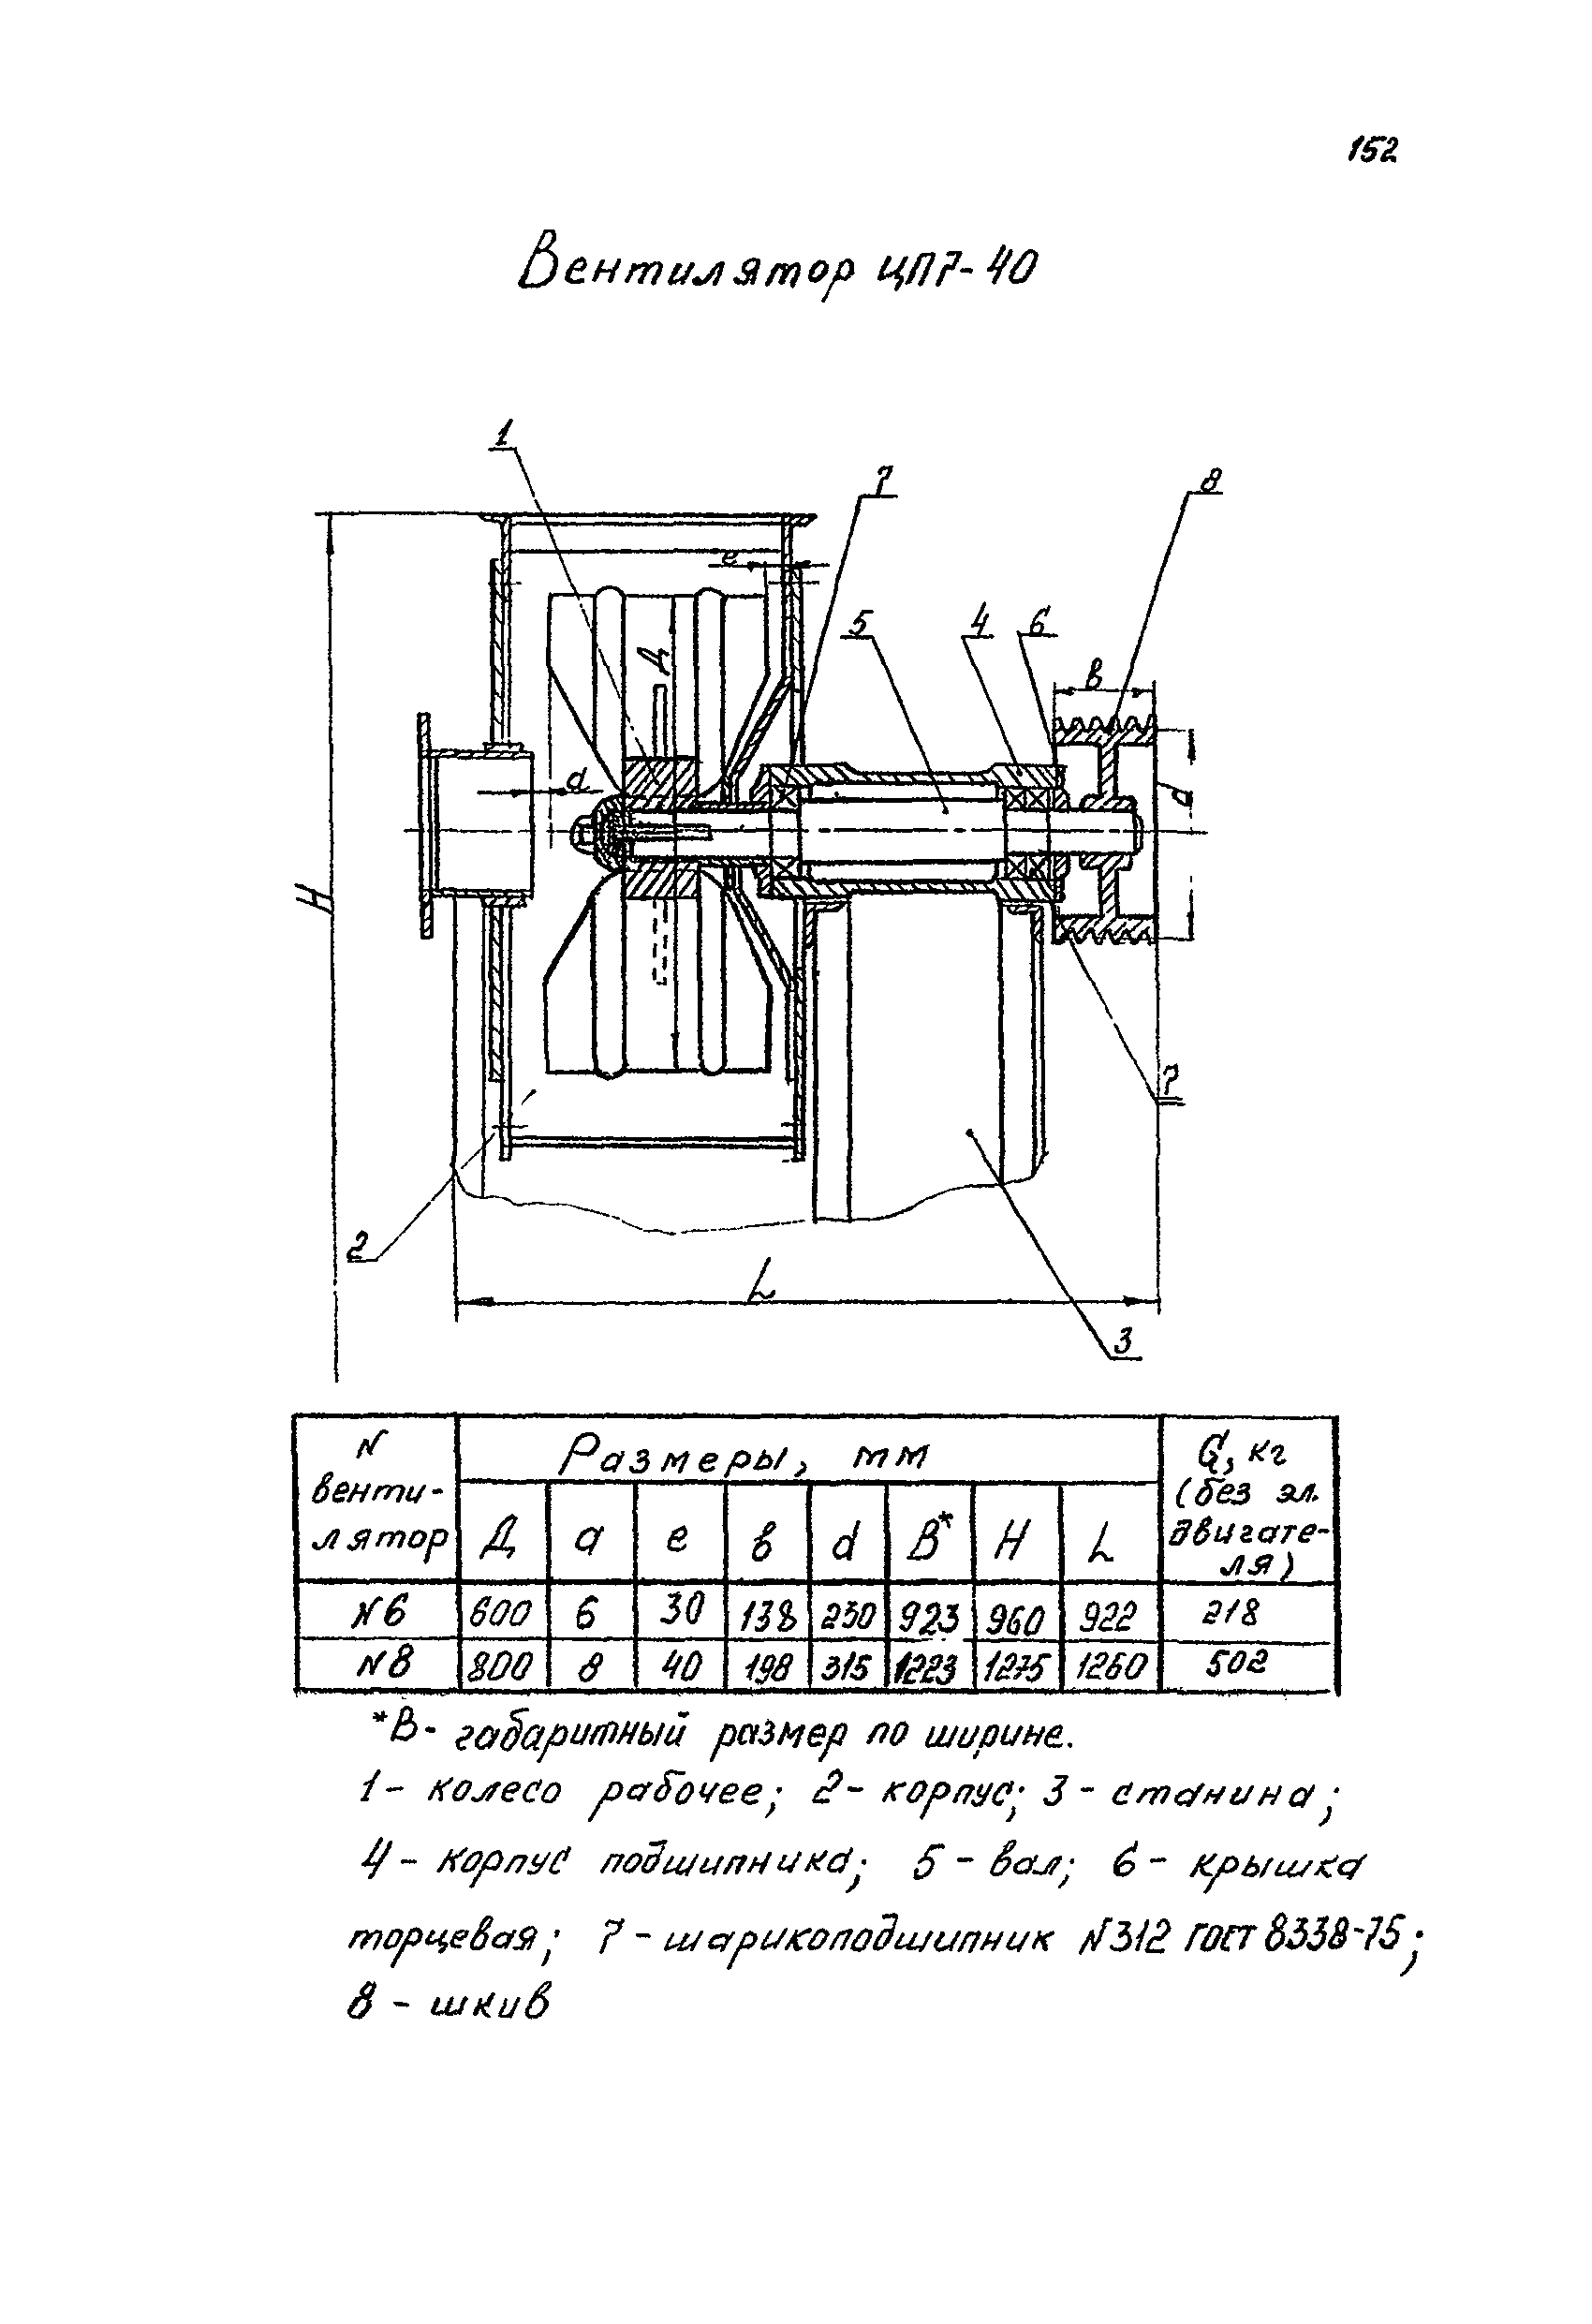 152
Вентилятор ЦП7-40
1
7
8
е
5
4
6
Д
в
а
d
H
7
2
L
3
N венти-лятор
Размеры, мм
G, кг (без эл. двигате-ля)
Д а е в d В* Н L
N6 600 6 30 138 250 923 960 922 218
N8 800 8 40 198 315 1223 1275 1260 502
*В- габаритный размер по ширине.
1- колесо рабочее; 2- корпус; 3 - станина;
4- корпус подшипника; 5 - вал; 6 - крышка
торцевая; 7 - шарикоподшипник N312 ГОСТ 8338-75;
8 - шкив